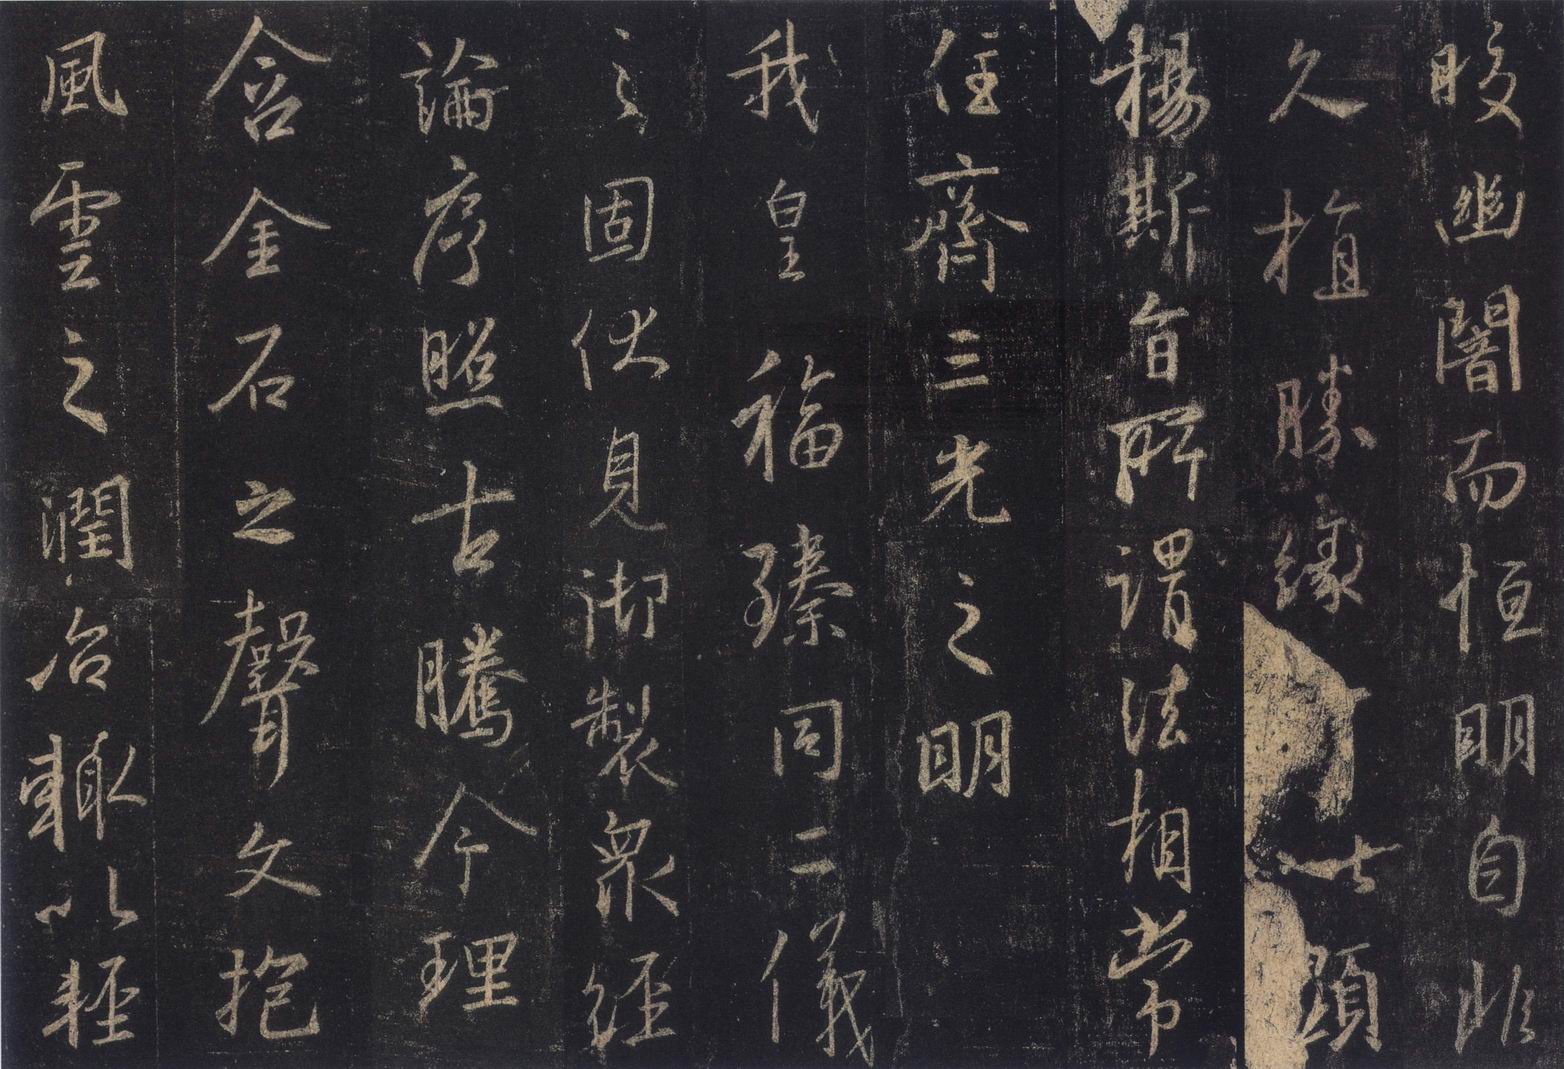 晈幽闇而恒明自非
久植勝緣以顯
揚斯旨所謂法相常
住齊三光之明
我皇福臻同二儀
之固伏見御製眾經
論序照古騰今理
含金石之聲文抱
風雲之潤治輒以輕